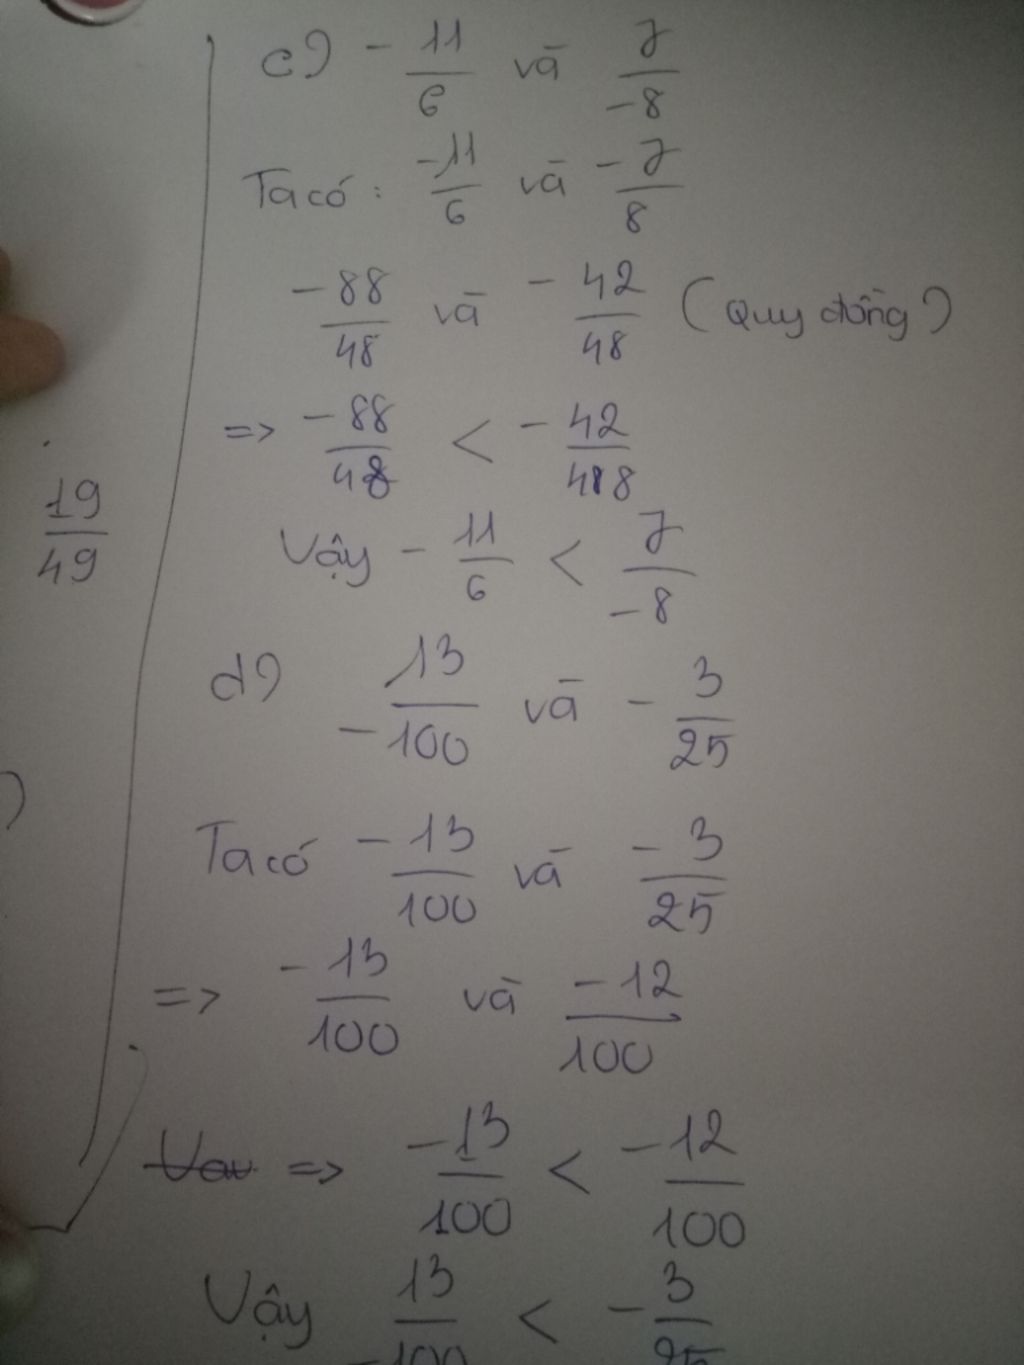 c) - 11/6 và 7/-8
Ta có: -11/6 và -7/8
-88/48 và -42/48 (Quy đồng)
=> -88/48 < -42/48
Vậy - 11/6 < 7/-8
19/49
d) 13/-100 và - 3/25
Ta có -13/100 và -3/25
=> -13/100 và -12/100
=> -13/100 < -12/100
Vậy 13/-100 < -3/25
)